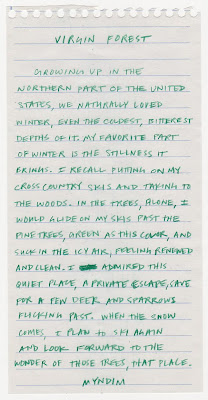 VIRGIN FOREST
GROWING UP IN THE
NORTHERN PART OF THE UNITED
STATES, WE NATURALLY LOVED
WINTER, EVEN THE COLDEST, BITTEREST
DEPTHS OF IT. MY FAVORITE PART
OF WINTER IS THE STILLNESS IT
BRINGS. I RECALL PUTTING ON MY
CROSS COUNTRY SKIS AND TAKING TO
THE WOODS. IN THE TREES, ALONE, I
WOULD GLIDE ON MY SKIS PAST THE
PINE TREES, GREEN AS THIS COLOR, AND
SUCK IN THE ICY AIR, FEELING RENEWED
AND CLEAN. I ADMIRED THIS
QUIET PLACE, A PRIVATE ESCAPE, SAVE
FOR A FEW DEER AND SPARROWS
FLICKING PAST. WHEN THE SNOW
COMES, I PLAN TO SKI AGAIN
AND LOOK FORWARD TO THE
WONDER OF THOSE TREES, THAT PLACE.
MYNDIM